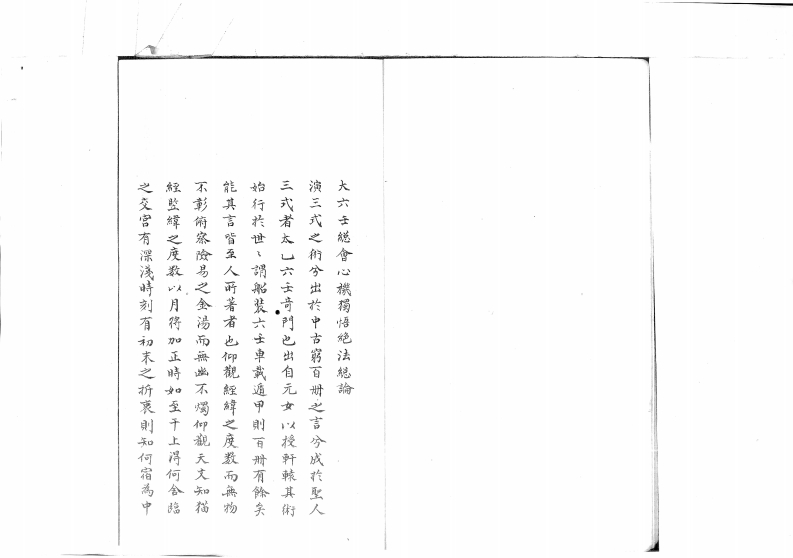 大六壬總會心機獨悟絶法總論
演三式之術兮出於中古窮百册之言兮成於聖人
三式者太乙六壬竒門也出自元女以授軒轅其術
始行於世〻謂船裝六壬車載遁甲則百册有餘矣
能其言皆至人所著者也仰觀經緯之度數而無物
不彰俯察險易之金湯而無幽不燭仰觀天文知猫
經竪緯之度数以月將加正時如至干上得何舍臨
之交宮有深淺時刻有初末之折衷則知何宿為中